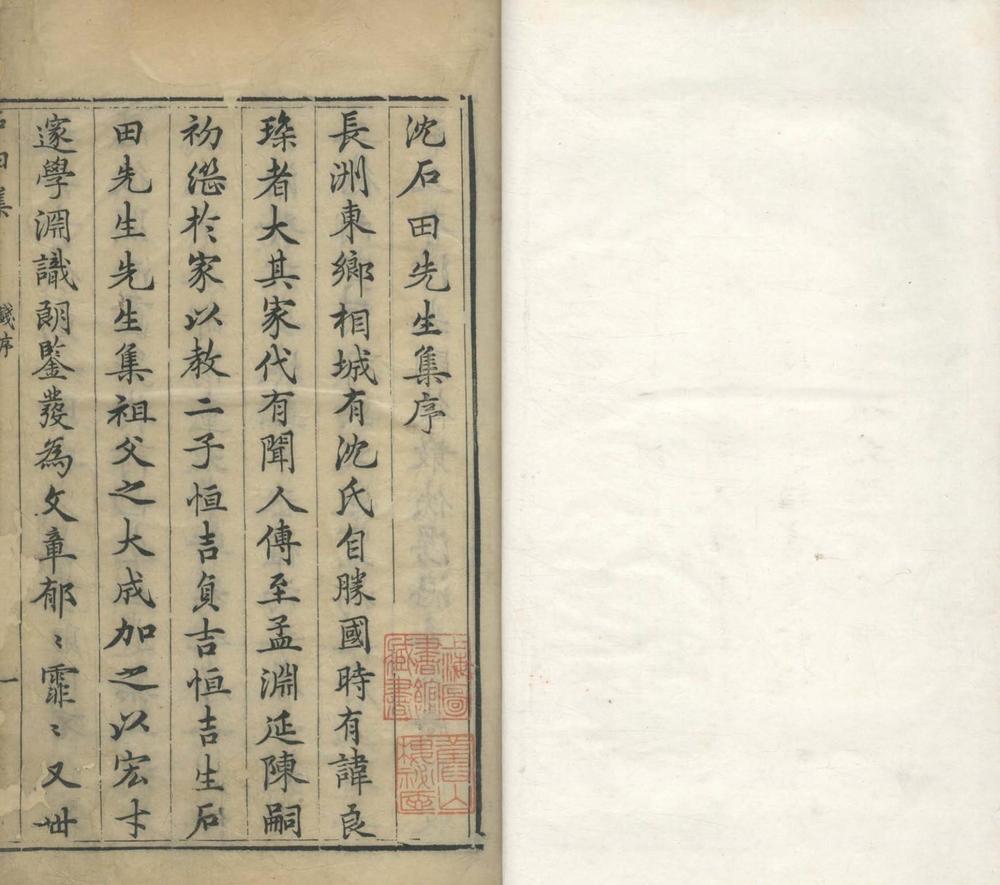 沈石田先生集序
長洲東鄉相城有沈氏自勝國時有諱良
琛者大其家代有聞人傳至孟淵延陳嗣
初先於家以教二子恒吉貞吉恒吉生石
田先生先生集祖父之大成加之以宏才
邃學淵識朗鑒發為文章郁〻霏〻又世
石田集 錢序 一
上海圖書館藏書